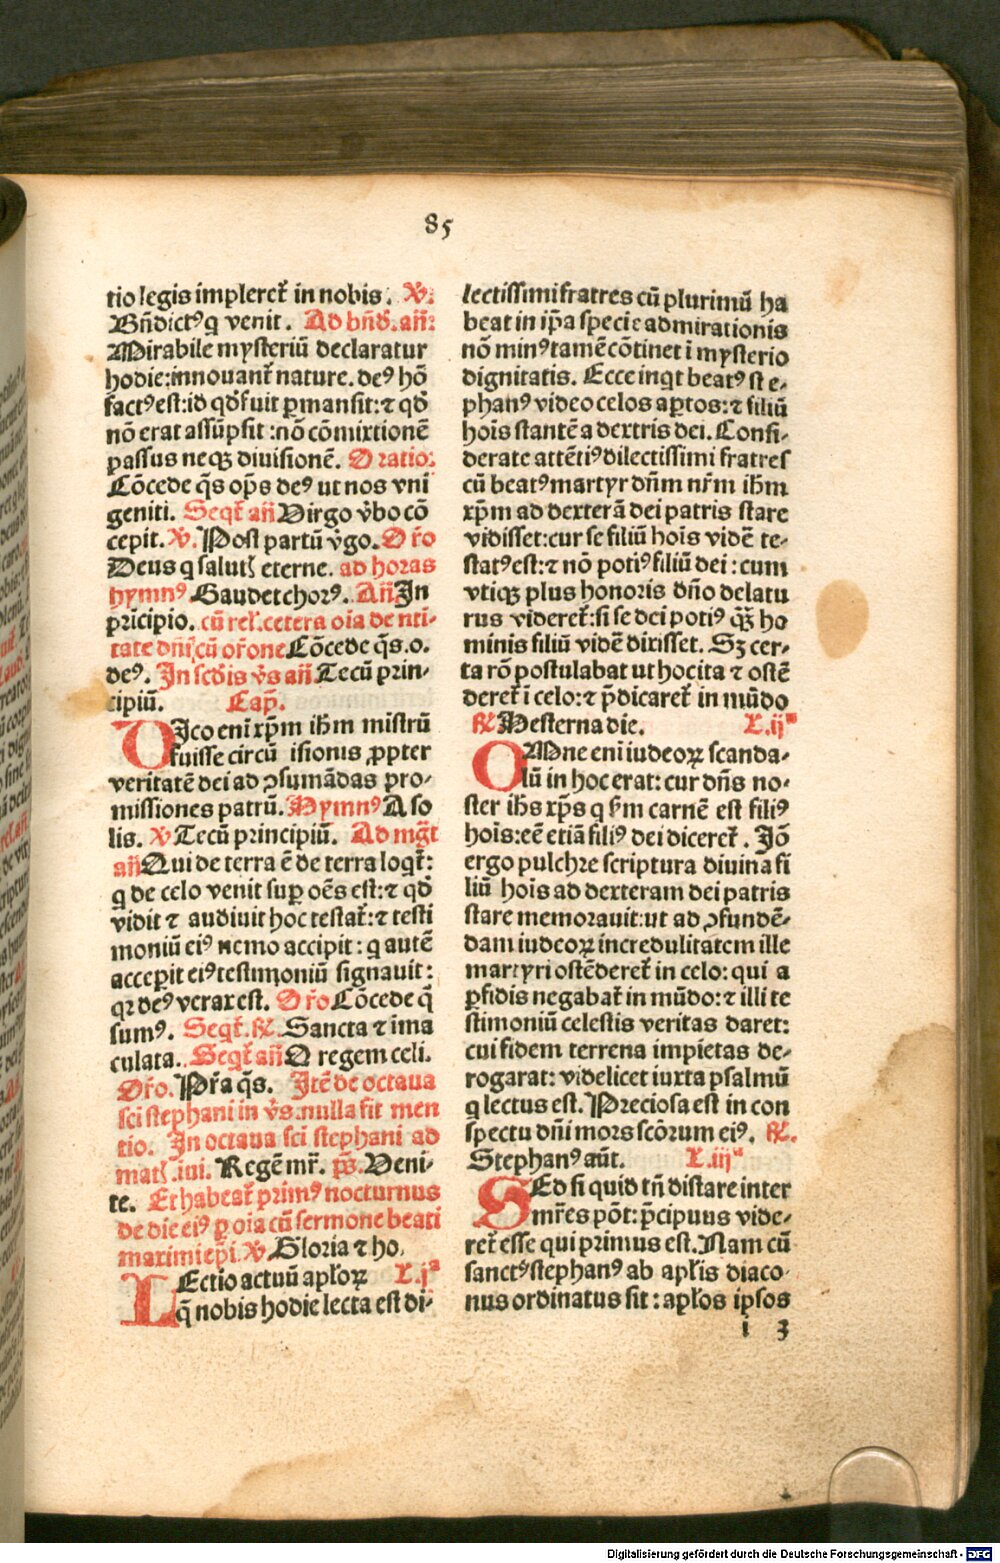 85
tio legis impleret᷑ in nobis. ꝟ.
Bn̄dict⁹ q venit. Ad bn̄d. an̄:
Mirabile mysteriū declaratur
hodie:innouant᷑ nature. de⁹ hō
fact⁹ est:id qd̄ fuit ꝑmansit:⁊ qd̄
nō erat assūpsit:nō cōmixtionē
passus neqꝫ diuisionē. Oratio:
Cōcede q̄s op̄s de⁹ ut nos vni
geniti. Seqt᷑ an̄ Virgo v̄bo cō
cepit. ꝟ. Post partū v̄go. Or̄o
Deus q salut{ eterne. ad horas
hymn⁹ Gaudet chor⁹. An̄ In
pricipio. cū rel̄. cetera oīa de nti-
tate dn̄i cū or̄one Cōcede q̄s. o.
de⁹. In scd̄is v̄s an̄ Tecū prin-
cipiū. Cap̄.
DIco enī xp̄m ih̄m mistrū
fuisse circū isionis ꝓpter
veritatē dei ad ↄsumādas pro-
missiones patrū. Hymn⁹ A so
lis. ꝟ Tecū principiū. Ad mg̅t
an̄ Qui de terra ē de terra loqt᷑:
q de celo venit suꝑ oēs est:⁊ qd̄
vidit ⁊ audiuit hoc testat᷑:⁊ testi
moniū ei⁹ nemo accipit: q autē
acceperit ei⁹ testimoniū signauit:
qꝛ de⁹ verax est. Or̄o Cōcede q̄
sum⁹. Seqt᷑. ꝶ. Sancta ⁊ ima
culata. Seqt᷑ an̄ O regem celi.
Or̄o. Pr̄a q̄s. Itē de octaua
sci stephani in v̄s. nulla fit men
tio. In octaua sci stephani ad
mat{. iui. Regē mr̄. ps̄. Veni-
te. Et habeat᷑ prim⁹ nocturnus
de die ei⁹ ꝑ oīa cū sermone beati
maximi ep̄i. ꝟ Gloria ⁊ ho.
LEctio actuū apl̄oꝝ L.jᵃ
q̄ nobis hodie lecta est di-
lectissimi fratres cū plurimū ha
beat in ip̄a specie admirationis
nō min⁹ tamē cōtinet ī mysterio
dignitatis. Ecce inqt beat⁹ ste-
phan⁹ video celos aꝑtos:⁊ filiū
hoīs stantē a dextris dei. Consi-
derate attēti⁹ dilectissimi fratres
cū beat⁹ martyr dn̄m nr̄m ih̄m
xp̄m ad dexterā dei patris stare
vidisset:cur se filiū hoīs vidē te-
stat⁹ est:⁊ nō poti⁹ filiū dei:cum
vtiqꝫ plus honoris dn̄o delatu
rus videret᷑:si se dei poti⁹ qꝫ ho
minis filiū vidē dixisset. Sꝫ cer-
ta rō postulabat ut hoc ita ⁊ ostē
deret᷑ i celo:⁊ p̄dicaret᷑ in mūdo
ꝶ Hesterna die. L.ijᵃ
OMne enī iudeoꝝ scanda-
lū in hoc erat: cur dn̄s no-
ster ih̄s xp̄s q s̄m carnē est fili⁹
hoīs:eē etiā fili⁹ dei diceret᷑. Iō
ergo pulchre scriptura diuina fi
liū hoīs ad dexteram dei patris
stare memorauit:ut ad ↄfundē-
dam iudeoꝝ incredulitatem ille
martyri ostēderet᷑ in celo: qui a
ꝑfidis negabat᷑ in mūdo:⁊ illi te
stimoniū celestis veritas daret:
cui fidem terrena impietas de-
rogarat: videlicet iuxta psalmū
q lectus est. Preciosa est in con
spectu dn̄i mors scōrum ei⁹. ꝶ.
Stephan⁹ aūt. L.iijᵃ
SEd si quid tn̄ distare inter
mr̄es pōt: p̄cipuus vide-
ret᷑ esse qui primus est. Nam cū
sanct⁹ stephan⁹ ab apl̄is diaco
nus ordinatus sit: apl̄os ipsos
i 3
Digitalisierung gefördert durch die Deutsche Forschungsgemeinschaft - DFG